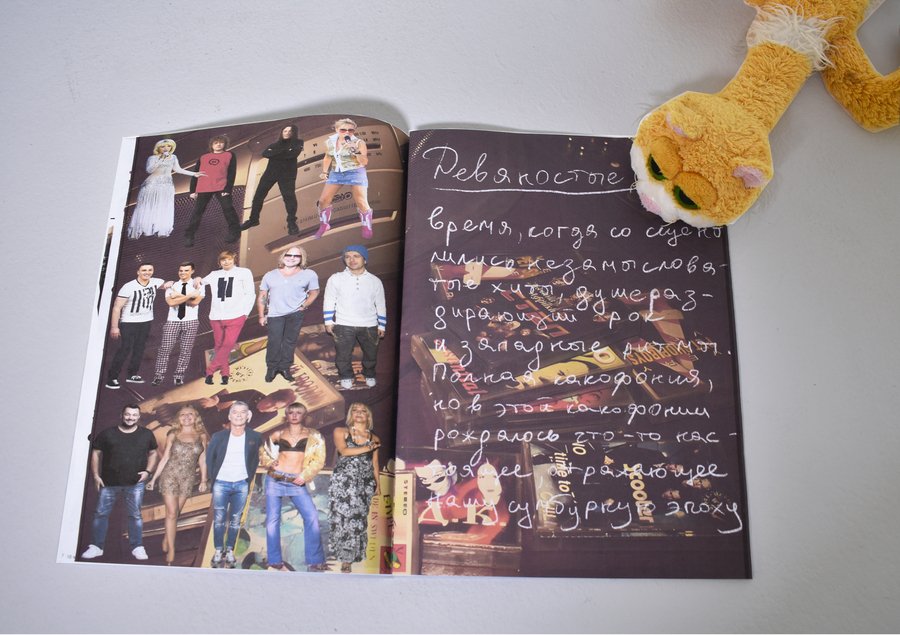 Девяностые
время, когда со сцено
лились незамыслова-
тые хиты, душераз-
дирающий рок
и западные ритмы.
Полная какофония,
но в этой какофонии
рождалось что-то нас-
тоящее, отражающее
нашу сумбурную эпоху
STEREO
NO
time to
scooter